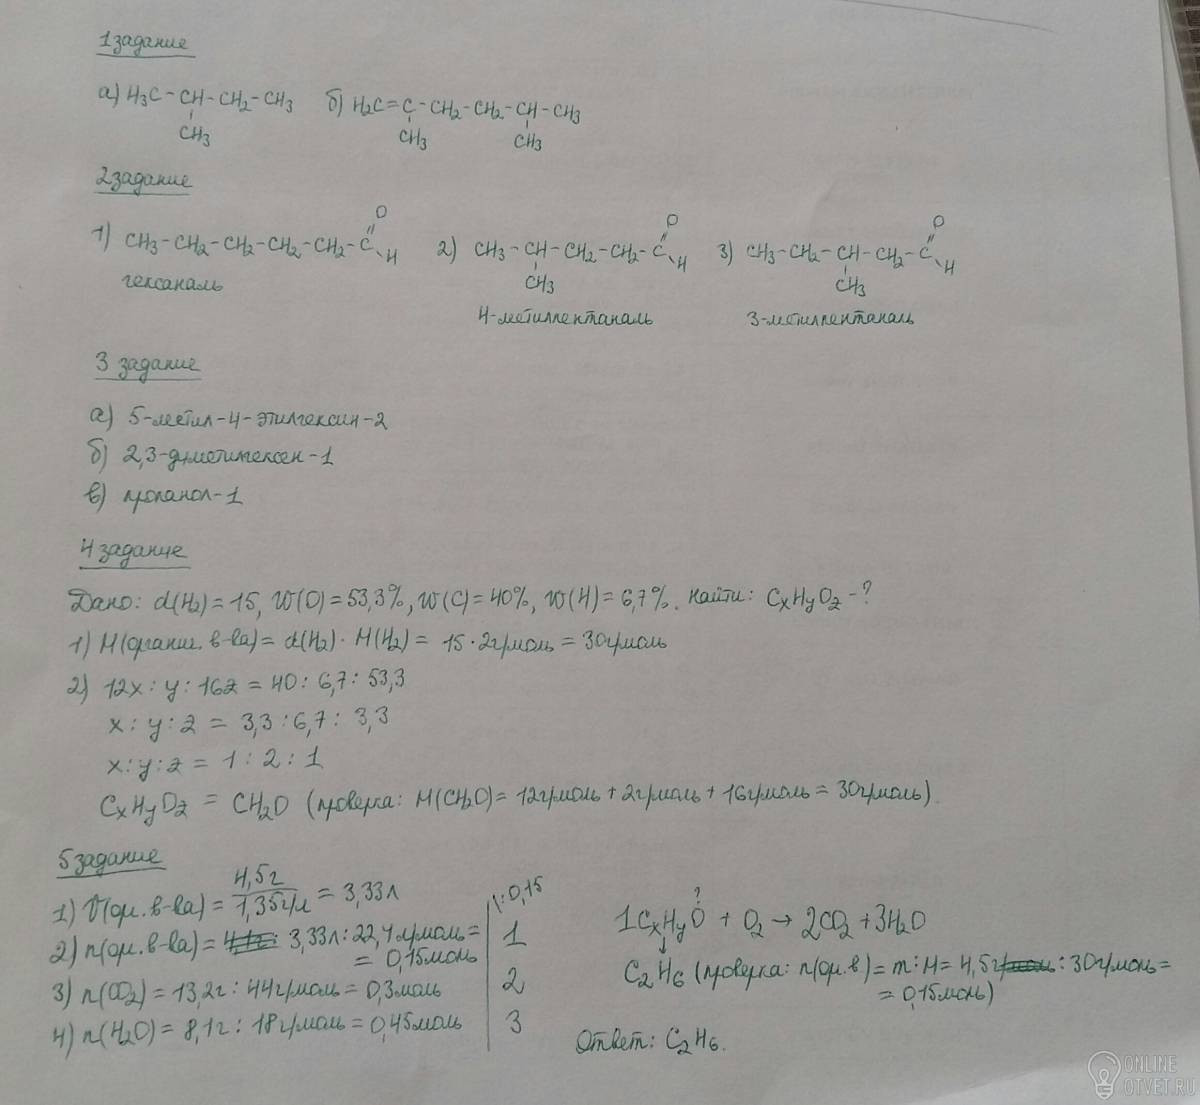 1 задание
а) H3C - CH - CH2 - CH3 б) H2C = C - CH2 - CH2 - CH - CH3
CH3 CH3 CH3
2 задание
O O O
1) CH3 - CH2 - CH2 - CH2 - CH2 - C 2) CH3 - CH - CH2 - CH2 - C 3) CH3 - CH2 - CH - CH2 - C
H H H
гексаналь CH3 CH3
4-метилпентаналь 3-метилпентаналь
3 задание
а) 5-метил-4-этилгексин-2
б) 2,3-диметилгексен-1
в) пропанол-1
4 задание
Дано: d(H2) = 15, W(O) = 53,3%, W(C) = 40%, W(H) = 6,7%. Найти: CxHyOz - ?
1) M(органич. в-ва) = d(H2) · M(H2) = 15 · 2г/моль = 30г/моль
2) 12x : y : 16z = 40 : 6,7 : 53,3
x : y : z = 3,3 : 6,7 : 3,3
x : y : z = 1 : 2 : 1
CxHyOz = CH2O (проверка: M(CH2O) = 12г/моль + 2г/моль + 16г/моль = 30г/моль).
5 задание
1) V(ор. в-ва) = 4,5г / 1,35г/л = 3,33л
2) n(ор. в-ва) = 3,33л : 22,4л/моль = = 0,15моль
3) n(CO2) = 13,2г : 44г/моль = 0,3моль
4) n(H2O) = 8,1г : 18г/моль = 0,45моль
| : 0,15
1
2
3
?
1CxHyO + O2 → 2CO2 + 3H2O
C2H6 (проверка: n(ор. в) = m : M = 4,5г : 30г/моль =
= 0,15моль)
Ответ: C2H6.
ONLINE
OTVET.RU